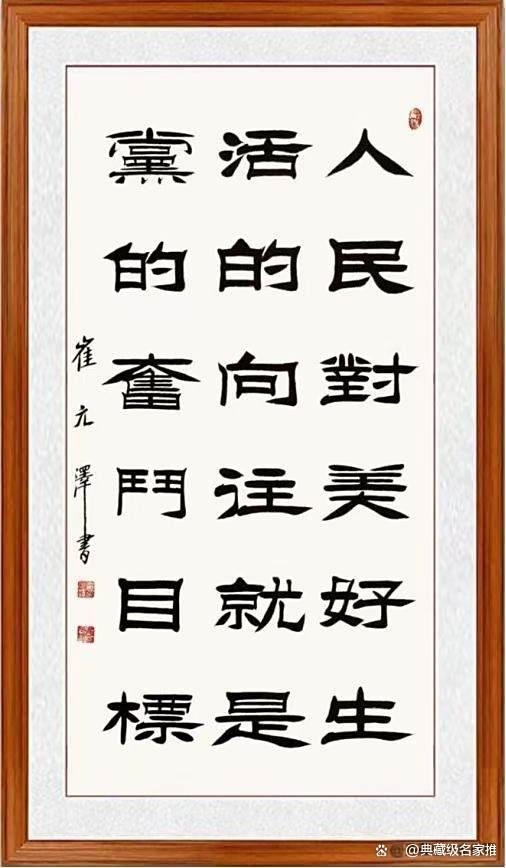 人民對美好生
活的向往就是
黨的奮鬥目標
崔元澤書
@典藏级名家推